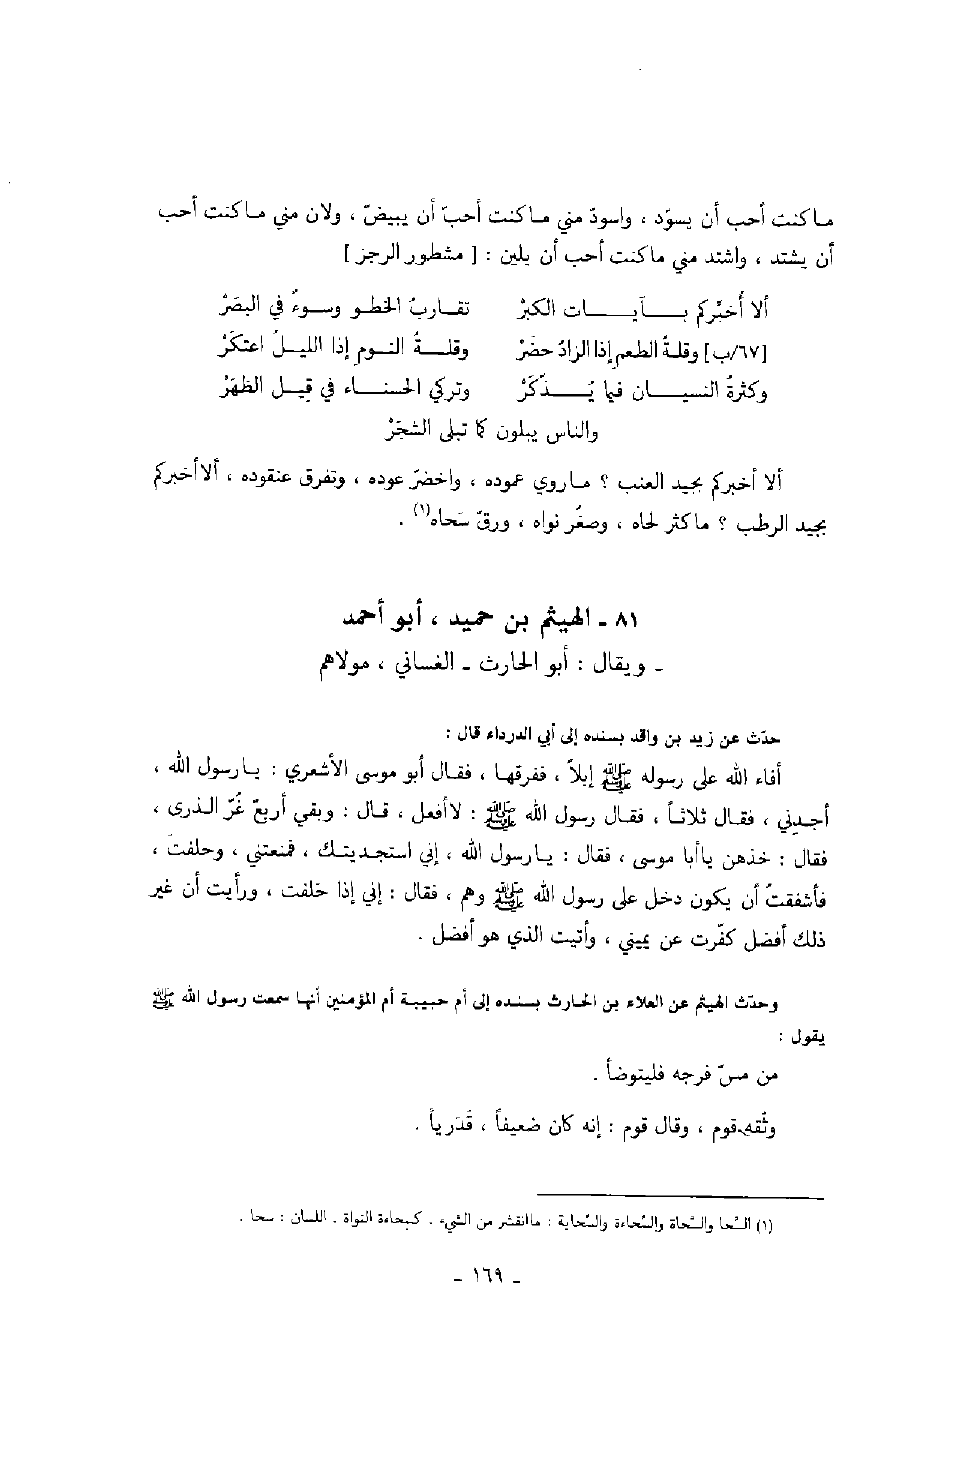 ما كنت أحب أن يسوّد ، واسودّ مني ما كنت أحبّ أن يبيضّ ، ولان مني ما كنت أحب
أن يشتد ، واشتد مني ما كنت أحب أن يلين : [ مشطور الرجز ]
ألا أُخبِّركم بـآيـات الكبرْ تقـاربُ الخطـو وسـوءٌ في البصَرْ
[٦٧/ب] وقلةُ الطعمِ إذا الزادُ حضَرْ وقلـةُ النـومِ إذا الليـلُ اعتكَرْ
وكثرةُ النسيـان فيما يُـذَّكَرْ وتركي الحسنـاء في قِبـل الظهَرْ
والناس يبلون كما تبلى الشجَرْ
ألا أخبركم بجيد العنب ؟ ما روي عموده ، واخضرّ عوده ، وتفرق عنقوده ، ألا أخبركم
بجيد الرطب ؟ ما كثر لحاه ، وصغُر نواه ، ورقّ سَحاه(١) .
٨١ ـ الهيثم بن حميد ، أبو أحمد
ـ ويقال : أبو الحارث ـ الغساني ، مولاهم
حدّث عن زيد بن واقد بسنده إلى أبي الدرداء قال :
أفاء الله على رسوله ﷺ إبلاً ، ففرقها ، فقال أبو موسى الأشعري : يا رسول الله ،
أجدِني ، فقال ثلاثاً ، فقال رسول الله ﷺ : لا أفعل ، قال : وبقي أربعٌ غُرّ الذرى ،
فقال : خذهن يا أبا موسى ، فقال : يا رسول الله ، إني استجديتك ، فمنعتني ، وحلفتَ ،
فأشفقتُ أن يكون دخل على رسول الله ﷺ وهم ، فقال : إني إذا حلفت ، ورأيت أن غير
ذلك أفضل كفّرت عن يميني ، وأتيت الذي هو أفضل .
وحدّث الهيثم عن العلاء بن الحارث بسنده إلى أم حبيبة أم المؤمنين أنها سمعت رسول الله ﷺ
يقول :
من مسّ فرجه فليتوضأ .
وثّقه قوم ، وقال قوم : إنه كان ضعيفاً ، قَدَرياً .
(١) السَّحا والسَّحاة والسَّحاءة والسِّحاية : ما انقشر من الشيء . كسِحاءة النواة . اللسان : سحا .
ـ ١٦٩ ـ